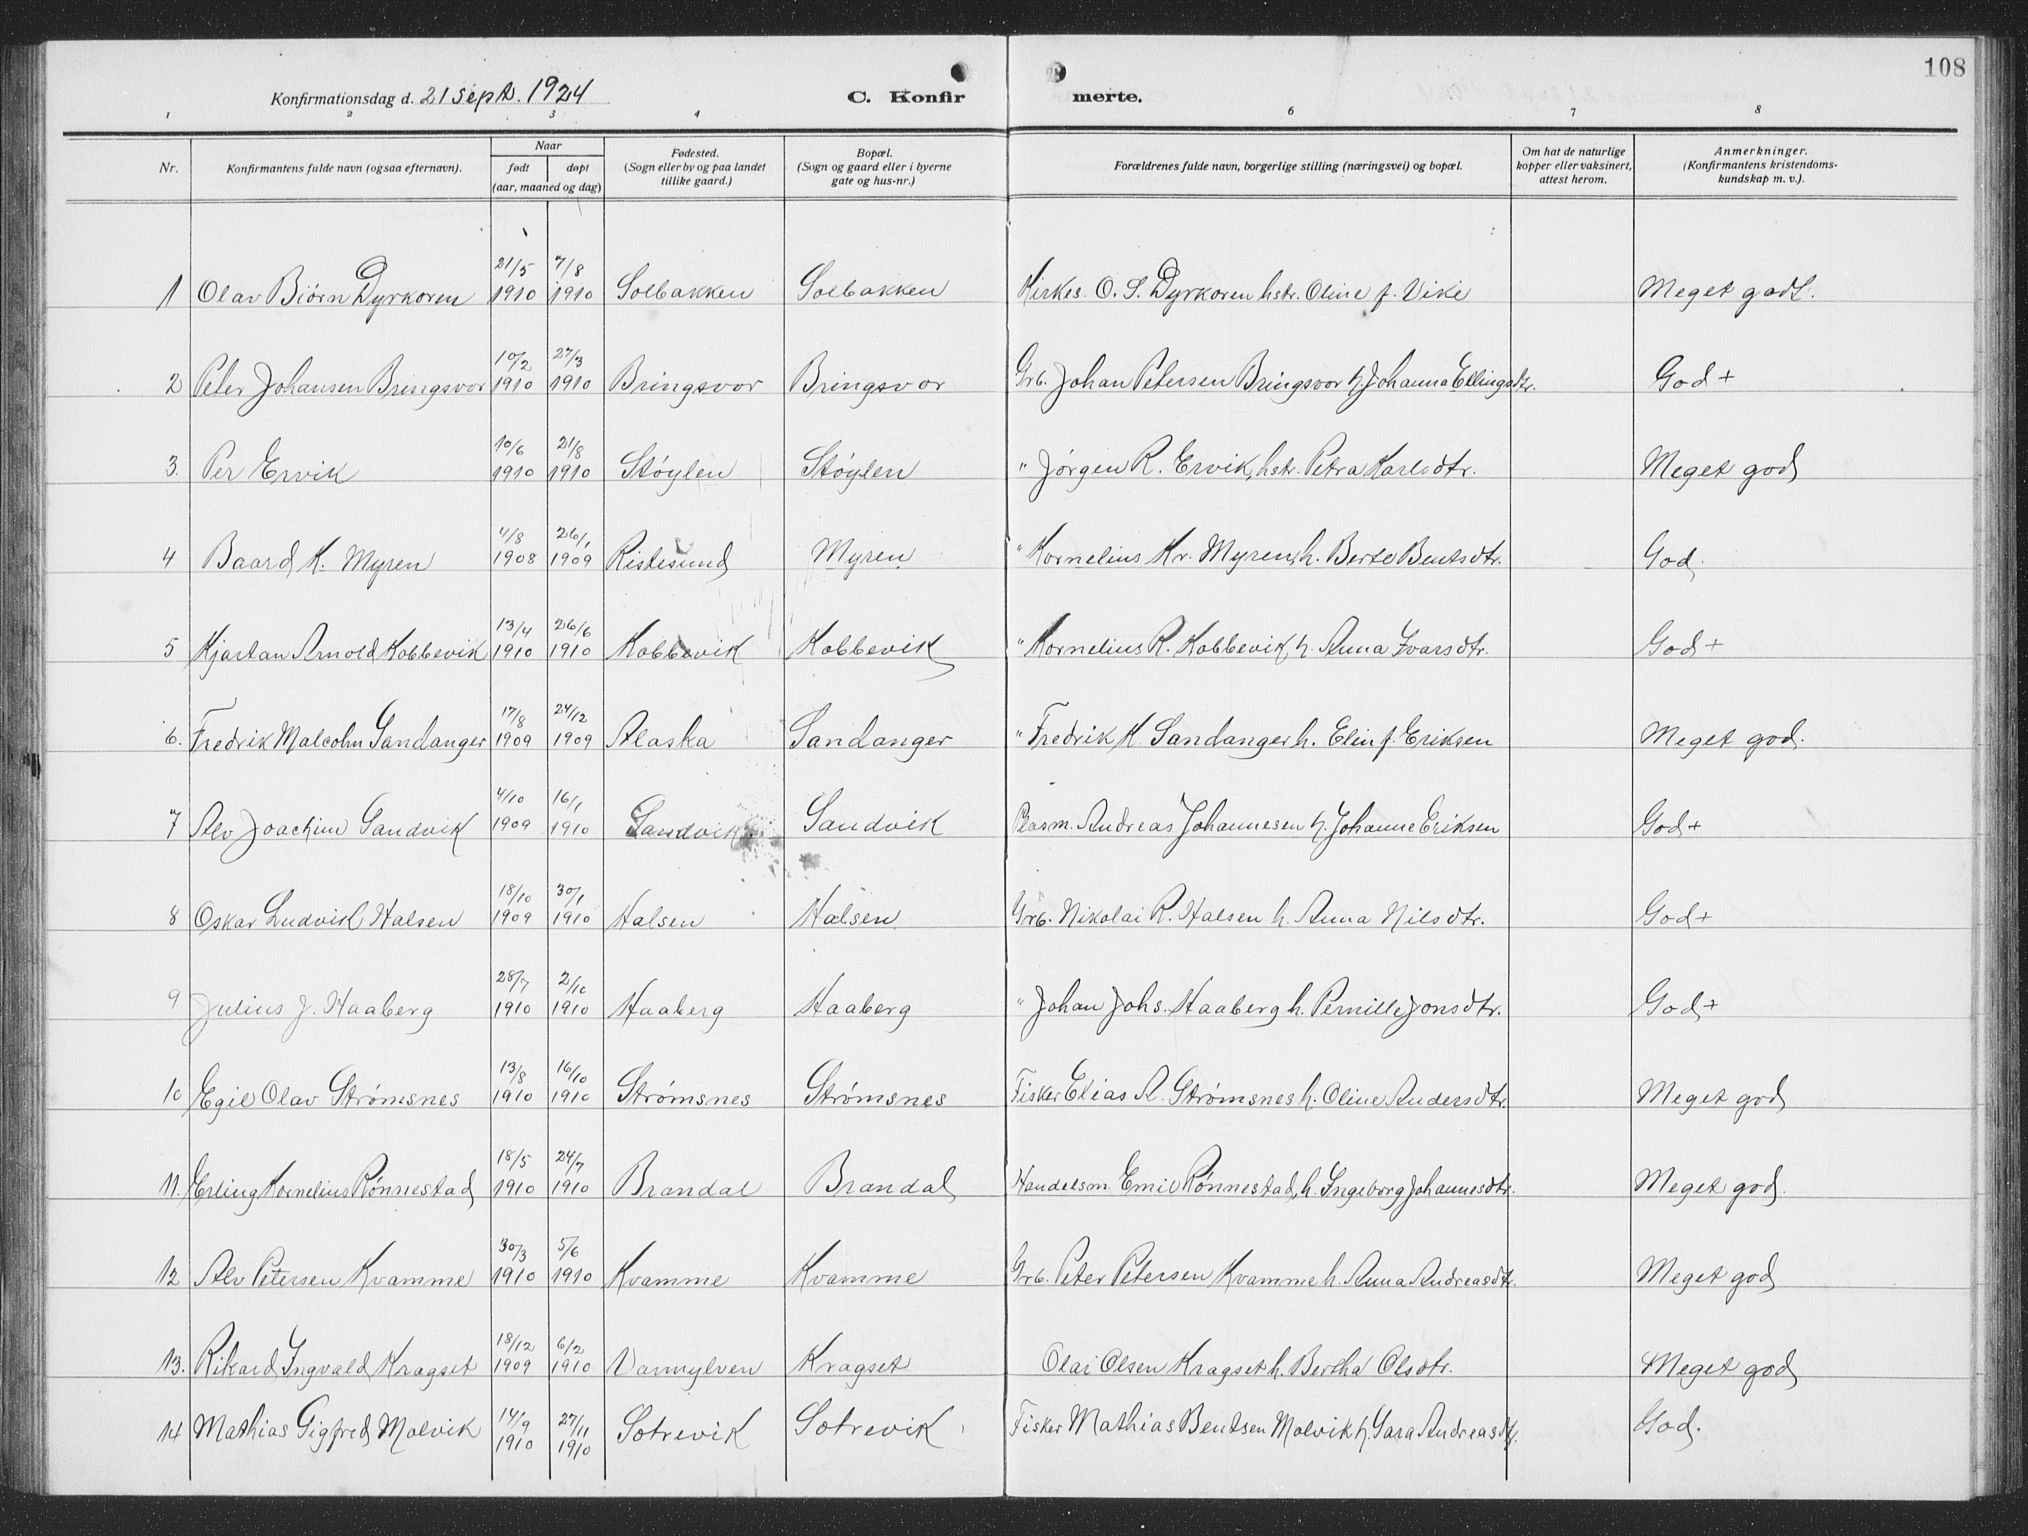 108
Konfirmationsdag d. 21 sept. 1924 C. Konfir merte.
1 2 3 4 6 7 8
Nr. Konfirmantens fulde navn (ogsaa efternavn). Naar født døpt (aar, maaned og dag) Fødested. (Sogn eller by og paa landet tillike gaard.) Bopæl. (Sogn og gaard eller i byerne gate og hus-nr.) Forældrenes fulde navn, borgerlige stilling (næringsvei) og bopæl. Om hat de naturlige kopper eller vaksinert, attest herom. Anmerkninger. (Konfirmantens kristendoms-kundskap m. v.).
1 Olav Biørn Dyrkoren 21/5 1910 7/8 1910 Solbakken Solbakken Kirkes. O. S. Dyrkoren hstr. Oline f. Vike Meget godt.
2 Peter Johansen Bringsvor 10/2 1910 27/3 1910 Bringsvor Bringsvor Grb. Johan Petersen Bringsvor h. Johanna Ellingsdtr. God +
3. Per Ervik 10/6 1910 21/8 1910 Støylen Støylen " Jørgen R. Ervik, hstr. Petra Karlsdtr. Meget god
4 Baard K. Myren 11/8 1908 26/1 1909 Ristesund Myren " Kornelius Kr. Myren, h. Berte Bentsdtr. God.
5 Kjartan Arnold Kobbevik 13/4 1910 26/6 1910 Kobbevik Kobbevik " Kornelius R. Kobbevik h. Anna Ivarsdtr. God +
6. Fredrik Malcolm Sandanger 17/8 1909 24/12 1909 Alaska Sandanger " Fredrik M. Sandanger h. Elin f. Eriksen Meget god.
7 Alv Joachim Sandvik 4/10 1909 16/1 1910 Sandvik Sandvik Plasm. Andreas Johannesen h. Johanne Eriksen God +
8 Oskar Ludvik Halsen 18/10 1909 30/1 1910 Halsen Halsen Grb. Nikolai R. Halsen h. Anna Nilsdtr. God +
9 Julius J. Haaberg 28/7 1910 2/10 1910 Haaberg Haaberg " Johan Johs. Haaberg h. Pernille Jonsdtr. God +
10 Egil Olav Strømsnes 13/8 1910 16/10 1910 Strømsnes Strømsnes Fisker Elias A. Strømsnes h. Oline Andersdtr. Meget god
11. Erling Kornelius Rønnestad 18/5 1910 24/7 1910 Brandal Brandal Handelsm. Emil Rønnestad, h. Ingeborg Johannesdtr. Meget god.
12 Alv Petersen Kvamme 30/3 1910 5/6 1910 Kvamme Kvamme Grb. Peter Petersen Kvamme h. Anna Andreasdtr. Meget god
13. Rikard Ingvald Kragset 18/12 1909 6/2 1910 Vannylven Kragset Olai Olsen Kragset h. Bertha Olsdtr. Meget god
14 Mathias Sigfred Molvik 14/9 1910 27/11 1910 Sotrevik Sotrevik Fisker Mathias Bentsen Molvik h. Sara Andreasdtr. God.